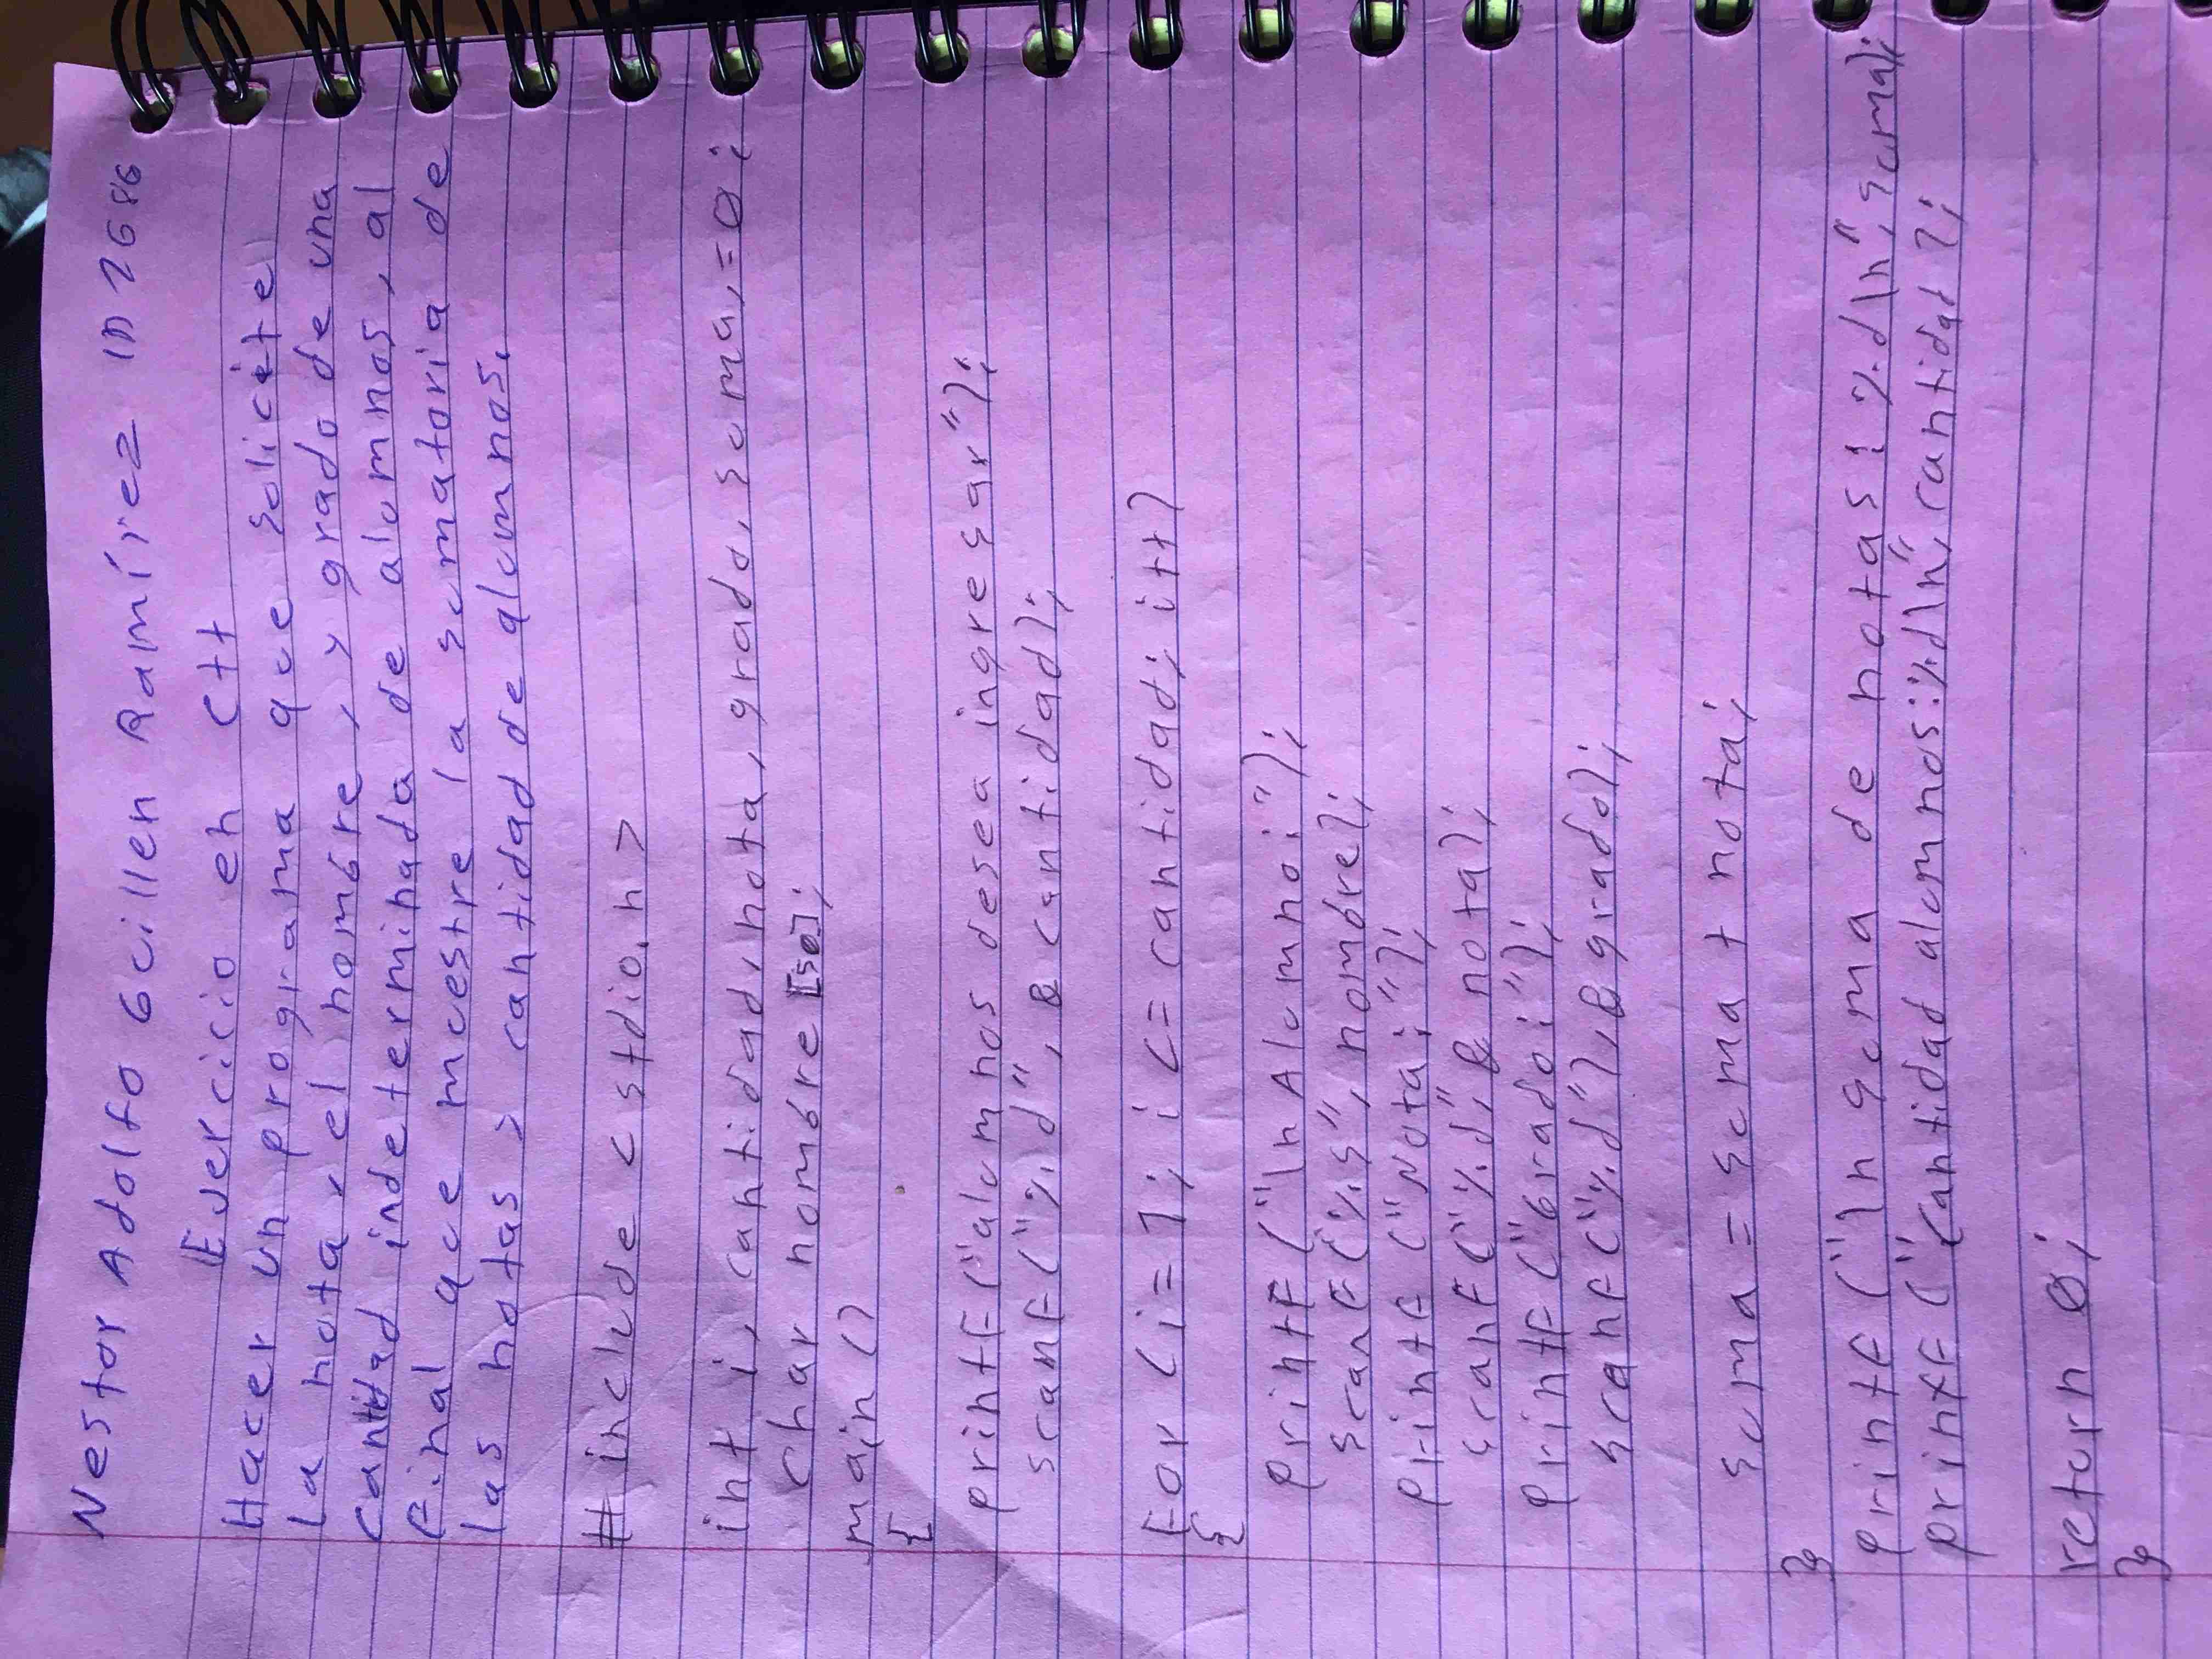 Nestor Adolfo Guillen Ramírez ID 2686
Ejercicio en C++
Hacer un programa que solicite
la nota, el nombre, y grado de una
cantidad indeterminada de alumnos, al
final que muestre la sumatoria de
las notas y cantidad de alumnos.
#include <stdio.h>
int i, cantidad, nota, grado, suma, =0;
char nombre [50];
main ()
{
printf ("alumnos desea ingresar");
scanf ("%d", & cantidad);
for (i=1; i <= cantidad; i++)
{
printf ("\n Alumno:");
scanf ("%s", nombre);
printf ("Nota:");
scanf ("%d", & nota);
printf ("Grado:");
scanf ("%d"), & grado);
suma = suma + nota;
}
printf ("\n suma de notas: %d\n", suma);
printf ("Cantidad alumnos: %d\n", cantidad);
return 0;
}